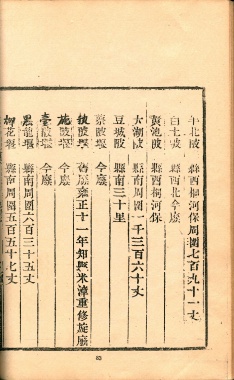 午北陂 縣西桐河保周圍七百九十一丈
白土陂 縣西北今廢
黃池陂 縣西桐河保
大湖陂 縣南周圍一千三百六十丈
豆城陂 縣南三十里
粟陂堰 今廢
陂堰 舊廢雍正十一年知縣米漳重修旋廢
陂堰 今廢
堰 今廢
黑龍堰 縣南周圍六百三十五丈
柳花堰 縣南周圍五百五十七丈
83